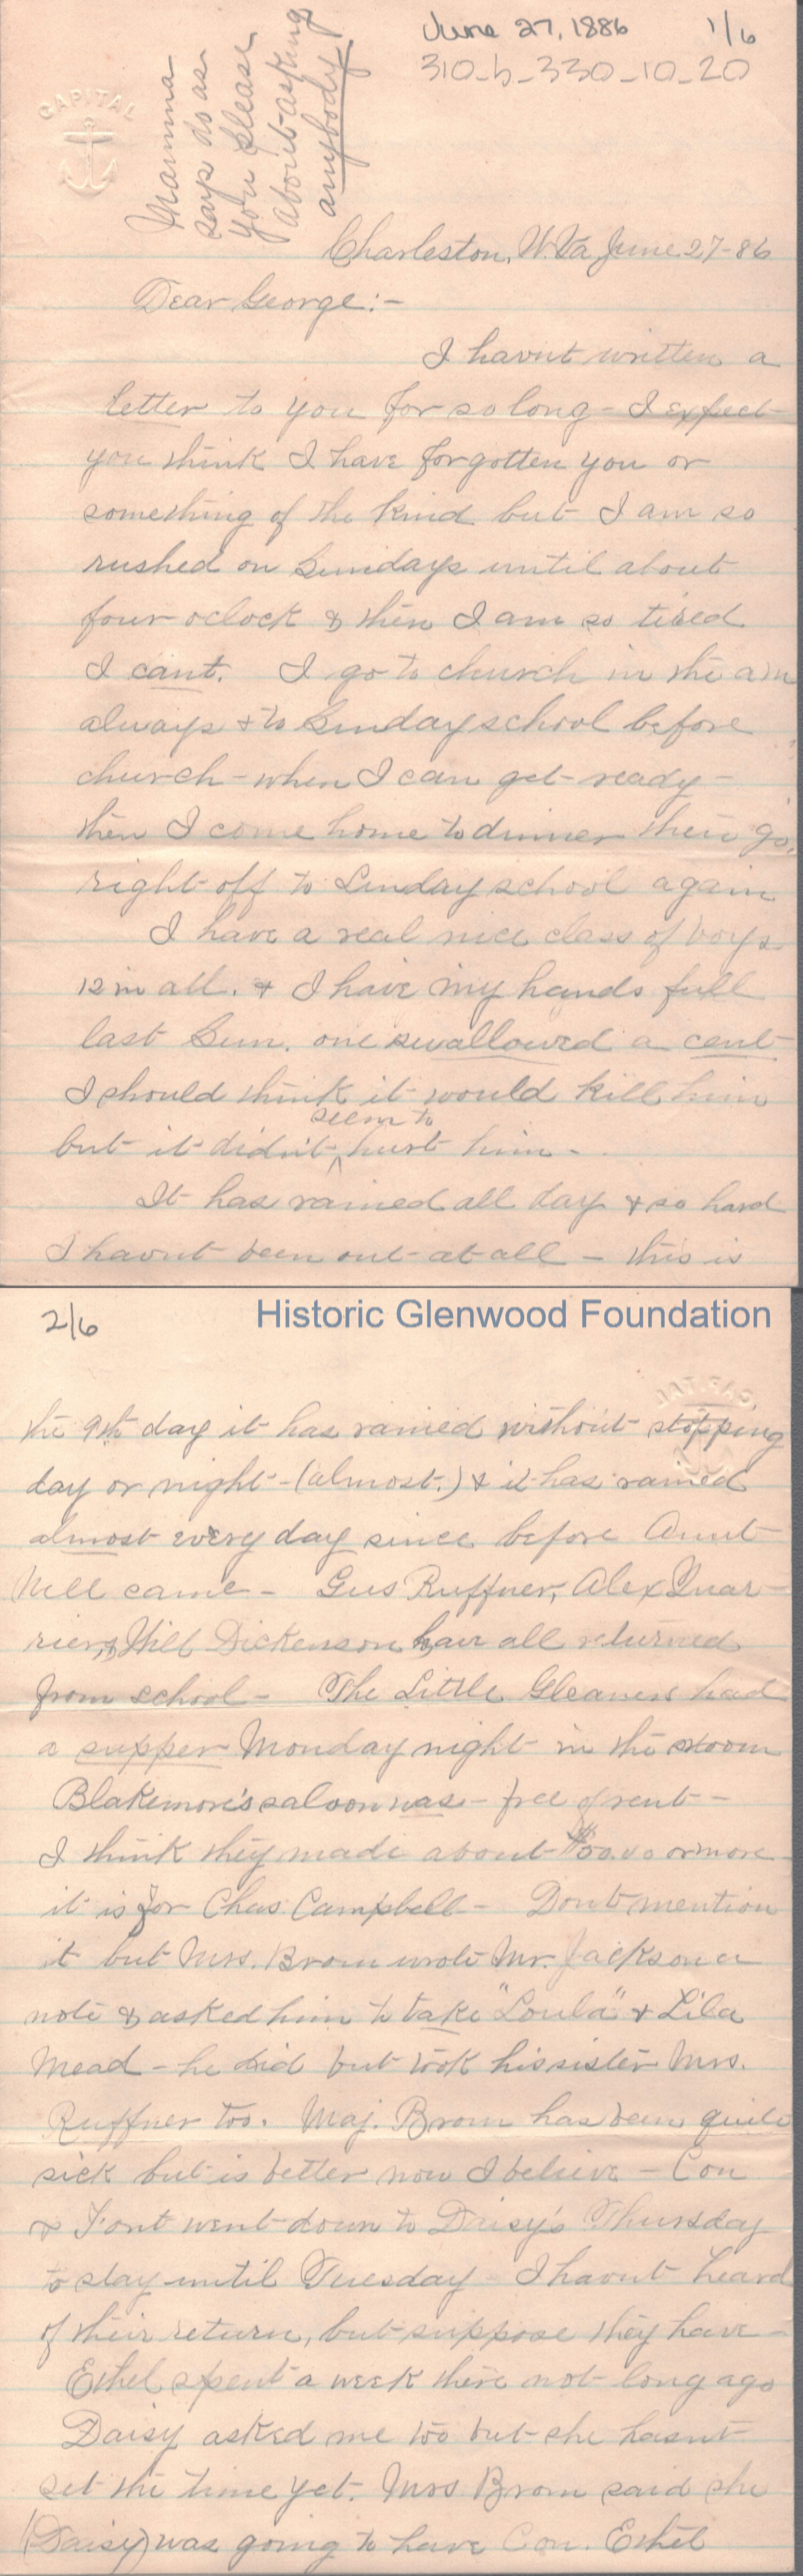 June 27, 1886 1/6
310-b-330-10-20
CAPITAL
Mamma
says do as
you please
about asking
anybody
Charleston, W.Va June 27-86
Dear George:-
I havn't written a
letter to you for so long - I expect
you think I have forgotten you or
something of the kind but I am so
rushed on Sundays until about
four oclock & then I am so tired
I cant. I go to church in the am
always & to Sunday school before
church - when I can get ready -
then I come home to dinner then go
right off to Sunday school again
I have a real nice class of boys
12 in all. & I have my hands full
last Sun. one swallowed a cent
I should think it would kill him
seem to
but it didn't ^ hurt him -
It has rained all day & so hard
I havnt been out at all - this is
2/6 Historic Glenwood Foundation
the 9th day it has rained without stopping
day or night - (almost.) & it has rained
almost every day since before Aunt
Nell came - Gus Ruffner, Alex Quar-
rier, & Will Dickenson have all returned
from school - The Little Gleaners had
a supper Monday night in the room
Blakemore's saloon was - free of rent -
I think they made about or more
it is for Chas. Campbell - Dont mention
it but Mrs. Brown wrote Mr. Jackson a
note & asked him to take "Loula" & Lila
Mead - he did but took his sister Mrs.
Ruffner too. Maj. Brown has been quite
sick but is better now I believe - Con
& Font went down to Daisy's Thursday
to stay until Tuesday - I havnt heard
of their return, but suppose they have -
Ethel spent a week there not long ago
Daisy asked me too but she hasnt
set the time yet. Mrs Brown said she
(Daisy) was going to have Con. Ethel